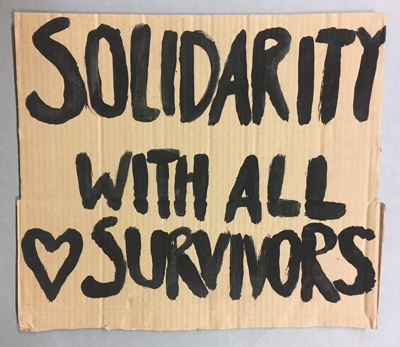 SOLIDARITY
WITH ALL
♡ SURVIVORS